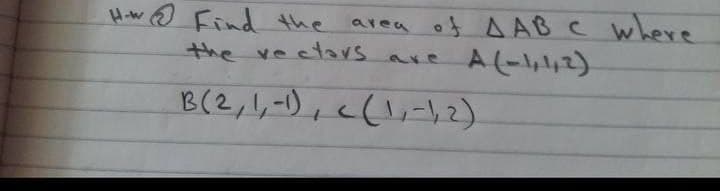 H.w ② Find the area of Δ AB C where
the vectors are A(-1,1,2)
B(2,1,-1), C(1,-1,2)